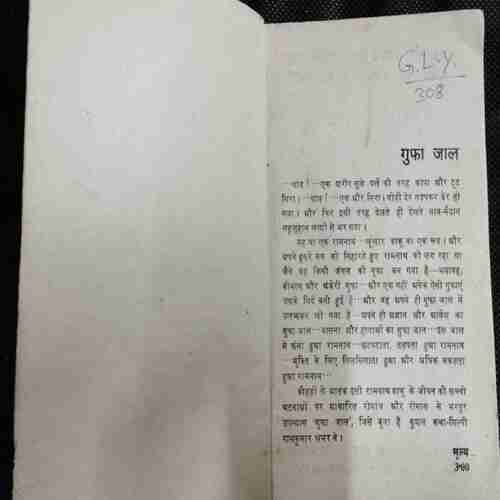 G.L.Y.
308
गुफा जाल
—धांय !—एक शरीर सूखे पत्ते की तरह कांपा और टूट
गिरा। —धांय !—एक और गिरा। थोड़ी देर तड़पकर ढेर हो
गया। और फिर इसी तरह देखते ही देखते खान-मैदान
लहूलुहान लाशों से भर गया।
यह था एक रामनाथ—खूंखार डाकू का एक रूप। और
अपने दूसरे रूप को निहारते हुए रामनाथ को लग रहा था
जैसे वह किसी जंगल की गुफा बन गया है—भयावह,
वीभत्स और अंधेरी गुफा—और एक नहीं अनेक ऐसी गुफाएं
उसके गिर्द बनी हुई हैं—और वह अपने ही गुफा जाल में
उलझकर खो गया है—अपने ही अज्ञान और आवेश का
गुफा जाल—वासना और हत्याओं का गुफा जाल—इस जाल
में फंसा हुआ रामनाथ—छटपटाता, तड़पता हुआ रामनाथ
—मुक्ति के लिए तिलमिलाता हुआ और अधिक जकड़ता
हुआ रामनाथ···
बीहड़ों के आतंक इसी रामनाथ डाकू के जीवन की सच्ची
घटनाओं पर आधारित रोमांच और रोमांस से भरपूर
उपन्यास 'गुफा जाल', जिसे बुना है कुशल कथा-शिल्पी
रामकुमार भ्रमर ने।
मूल्य
3·00